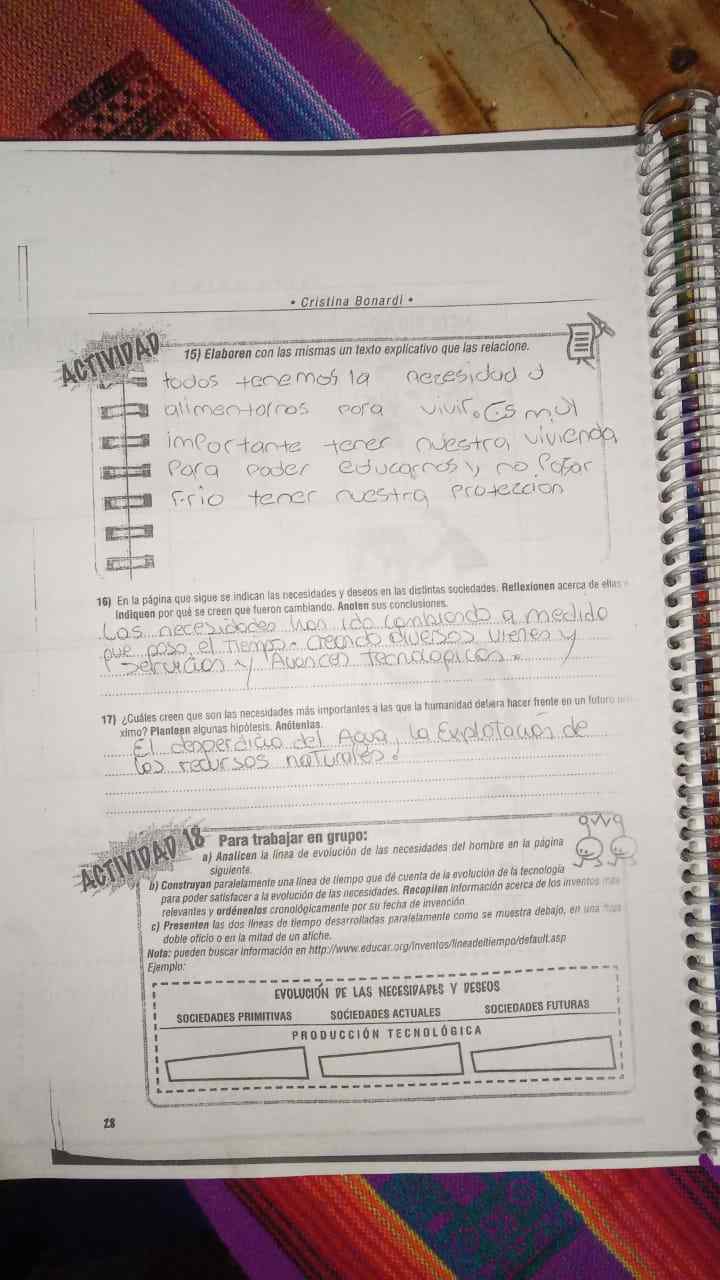 • Cristina Bonardi •
ACTIVIDAD
15) Elaboren con las mismas un texto explicativo que las relacione.
todos tenemos la necesidad d
alimentarnos para vivir. Es muy
importante tener nuestra vivienda
para poder educarnos y no pasar
Frio tener nuestra proteccion
16) En la página que sigue se indican las necesidades y deseos en las distintas sociedades. Reflexionen acerca de ellas e
indiquen por qué se creen que fueron cambiando. Anoten sus conclusiones.
Las necesidades han ido cambiando a medida
que paso el Tiempo. Creando diversos vienes y
servicios y Avances Tecnologicos.
17) ¿Cuáles creen que son las necesidades más importantes a las que la humanidad deberá hacer frente en un futuro
ximo? Planteen algunas hipótesis. Anótenlas.
El desperdicio del Agua, la Explotación de
los recursos naturales.
ACTIVIDAD 18
Para trabajar en grupo:
a) Analicen la línea de evolución de las necesidades del hombre en la página
siguiente.
b) Construyan paralelamente una línea de tiempo que dé cuenta de la evolución de la tecnología
para poder satisfacer a la evolución de las necesidades. Recopilen información acerca de los inventos más
relevantes y ordénenlos cronológicamente por su fecha de invención.
c) Presenten las dos líneas de tiempo desarrolladas paralelamente como se muestra debajo, en una hoja
doble oficio o en la mitad de un afiche.
Nota: pueden buscar información en http://www.educar.org/inventos/lineadeltiempo/default.asp
Ejemplo:
EVOLUCIÓN DE LAS NECESIDADES Y DESEOS
SOCIEDADES PRIMITIVAS SOCIEDADES ACTUALES SOCIEDADES FUTURAS
PRODUCCIÓN TECNOLÓGICA
28